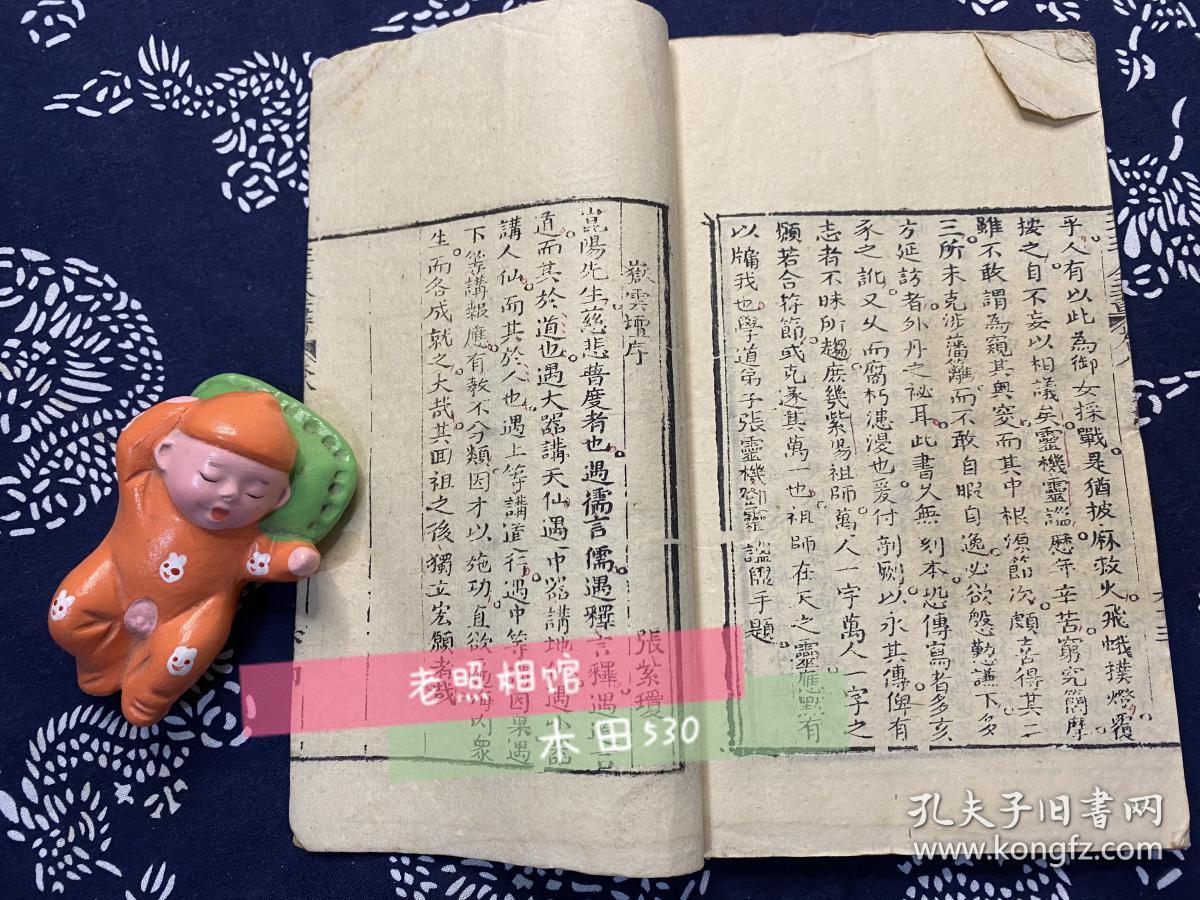 乎人有以此為御女採戰是猶披麻救火飛蛾撲燈覆
按之自不妄以相議矣靈機靈謐歷年辛苦窮究簡摩
雖不敢謂為窺其奧窔而其中根源節次頗喜得其二
三所未克涉藩離而不敢自暇自逸必欲慇懃謙下多
方延訪者外丹之祕耳此書久無刻本恐傳寫者多亥
豕之訛又久而腐朽漶漫也爰付剞劂以永其傳俾有
志者不昧所趨庶幾紫陽祖師萬人一字萬人一字之
願若合符節或克遂其萬一也祖師在天之靈應默有
以牖我也學道弟子張靈機鄧靈謐盥手題
嶽雲壇序
張紫瓊
崑陽先生慈悲普度者也遇儒言儒遇釋言釋遇道言
道而其於道也遇大器講天仙遇中器講地仙遇小器
講人仙而其於人也遇上等講道行遇中等講因果遇
下等講報應有教不分類因才以施功直欲
眾
生而各成就之大哉其面祖之後獨立宏願者哉
老照相馆
本田530
孔夫子旧书网
www.kongfz.com